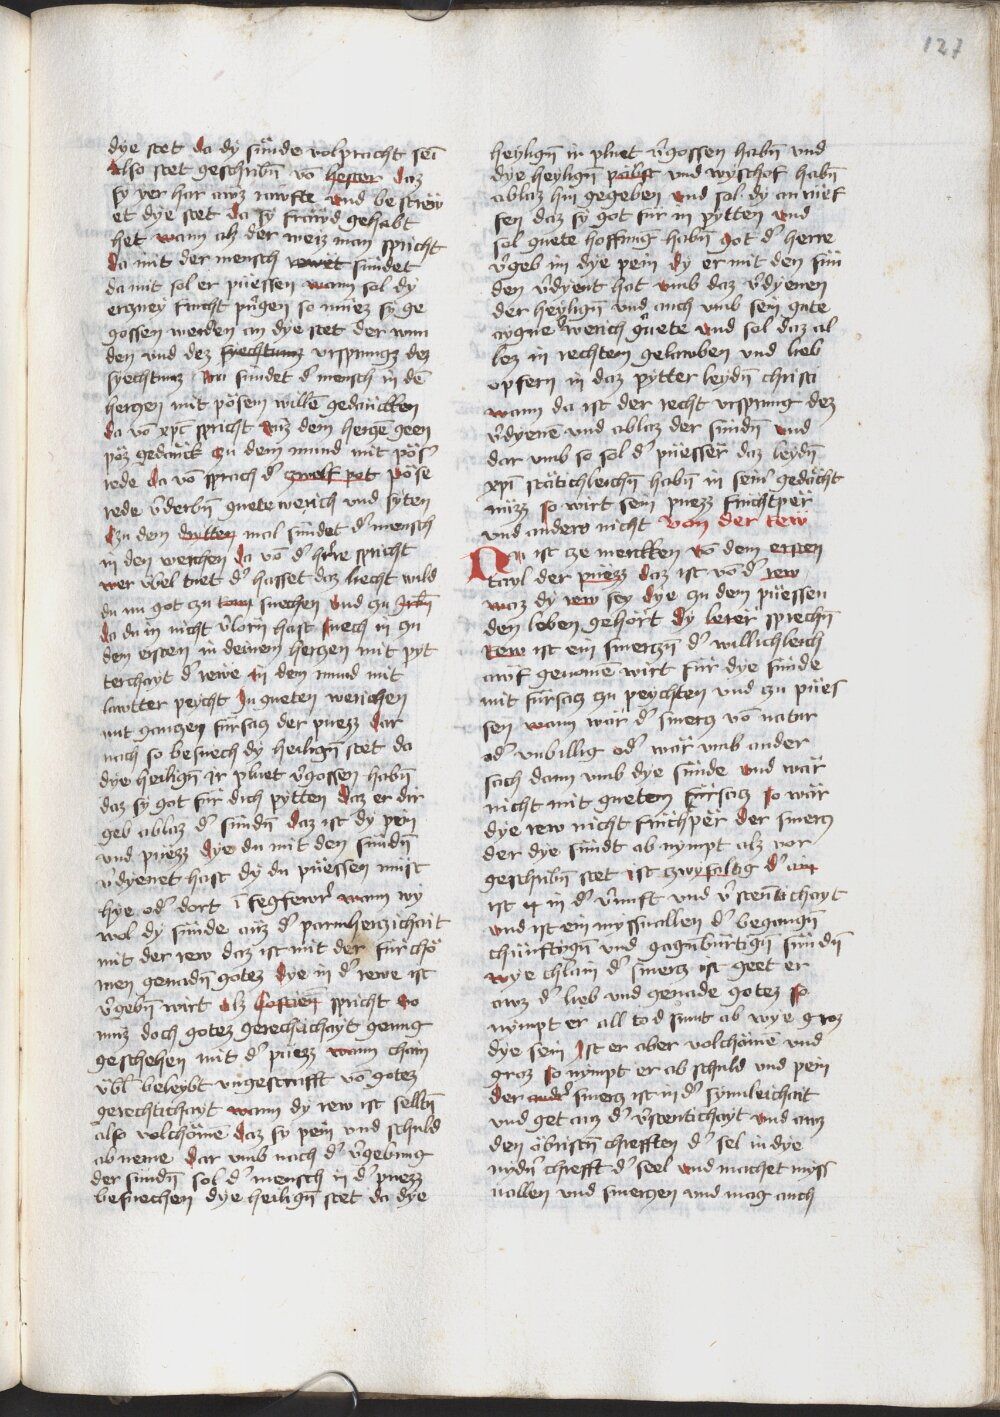 127
dye stet da dy sünde volpracht sei
Also stet geschribñ vo hester daz
sy yer har awz rawfte und besträw
et dye stet da sy fräwd gehabt
het wann alz der weiz man spricht
da mit der mensch sündet
da mit sol er püessen wann sol dy
erczney frucht pringen so muez sy ge
gossen werden an dye stet der wun
den und dez syechtumz ursprungz dez
syechtumz Nu sündet d' mensch in dē
herczen mit pösem willē gedanckken
da vō xp̄c spricht Auz dem herczē geen
pöz gedänck zu dem mund mit pös'
rede da vō sprach d' zwelf pot Pöse
rede v'derbñ guete werich und syten
Czu dem drytten mal sündet d' mensch
in den werchen da vō d' herre spricht
wer übel tuet d' hasset daz liecht wild
du nu got czu suechen und czu
da du in nicht v'lorn hast Suech in zu
dem ersten in deinem herczen mit pyt
terchayt d' rewe in dem mund mit
lawtter peycht In gueten werichen
mit ganczen fürsacz der puezz dar
nach so besuech dy heiligñ stet da
dye heiligñ ir pluet v'gossen habñ
daz sy got für dich pytten daz er dir
geb ablaz d' sündñ daz ist dy pein
und puezz dye du mit den sündñ
v'dyenet hast dy du püessen müst
hye od' dort ī fegfewr' wann wy
wol dy sünde auz d' parmherczichait
mit der rew daz ist mit der für chö
men genadñ gotez dye in d' rewe ist
v'gebñ wirt Alz spricht so
muz doch gotez gerechtichayt genug
geschehen mit d' puezz wann chain
übl beleybt ungestrafft vō gotez
gerechtichayt wann dy rew ist seltñ
also volchömē daz sy pein und schuld
ab neme Dar umb nach d' v'gebung
der sündñ sol d' mensch in d' puezz
besuechen dye heiligñ stet da dye
heyligñ ir pluet v'gossen habñ und
dye heyligñ päbst und wyschof habñ
ablaz hin gegeben und sol dy an rüef
fen daz sy got für in pytten und
sol guete hoffnūg habñ got d' herre
v'geb im dye pein dy er mit den sün
den v'dyent hat umb daz v'dyenen
der heyligñ und auch umb sein gute
aygne werich guete und sol daz al
lez in rechtem gelawben und lieb
opfern in daz pytter leydñ christi
wann da ist der recht ursprung dez
v'dyenē und ablaz der sündñ und
dar umb so sol d' püesser daz leydñ
xp̄i stätichleichñ habñ in sein' gedächt
nüzz so wirt sein puezz fruchtper
und anders nicht Von der rew
Nu ist cze merckken vō dem ersten
tayl der puezz daz ist vō d' rew
waz dy rew sey dye zu dem püessen
den leben gehört Dy lerer sprechñ
Rew ist ein smerczñ d' willichleich
auf genomē wirt für dye sünde
mit fürsacz zu peychten und zu pües
sen wann wär d' smercz vō natur
od' unbillig od' wär umb ander
sach dann umb dye sünde und wär
nicht mit guetem fürsacz so wär
dye rew nicht fruchper der smercz
der dye sündt ab nympt alz vor
geschribñ stet ist zwyfaltig d' ain
ist in d' v'nuft und v'stentichayt
und ist ein myssvallen d' begangñ
chünftygñ und gagnbürtigñ sündñ
wye chlain d' smercz ist geet er
awz d' lieb und genade gotez so
nympt er all tod sünt ab wye groz
dye sein Ist er aber volchömē und
groz so nympt er ab schuld und pein
der smercz ist in d' synnleichait
und get auz d' v'stentichayt und auz
den öbristñ chrefften d' sel in dye
nydñ chrefft d' seel und machet myss
vallen und smerczen und mag auch